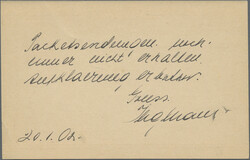 Paketsendungen noch
immer nicht erhalten.
Aufklaerung erbeten.
Gruss.
20.1.02.